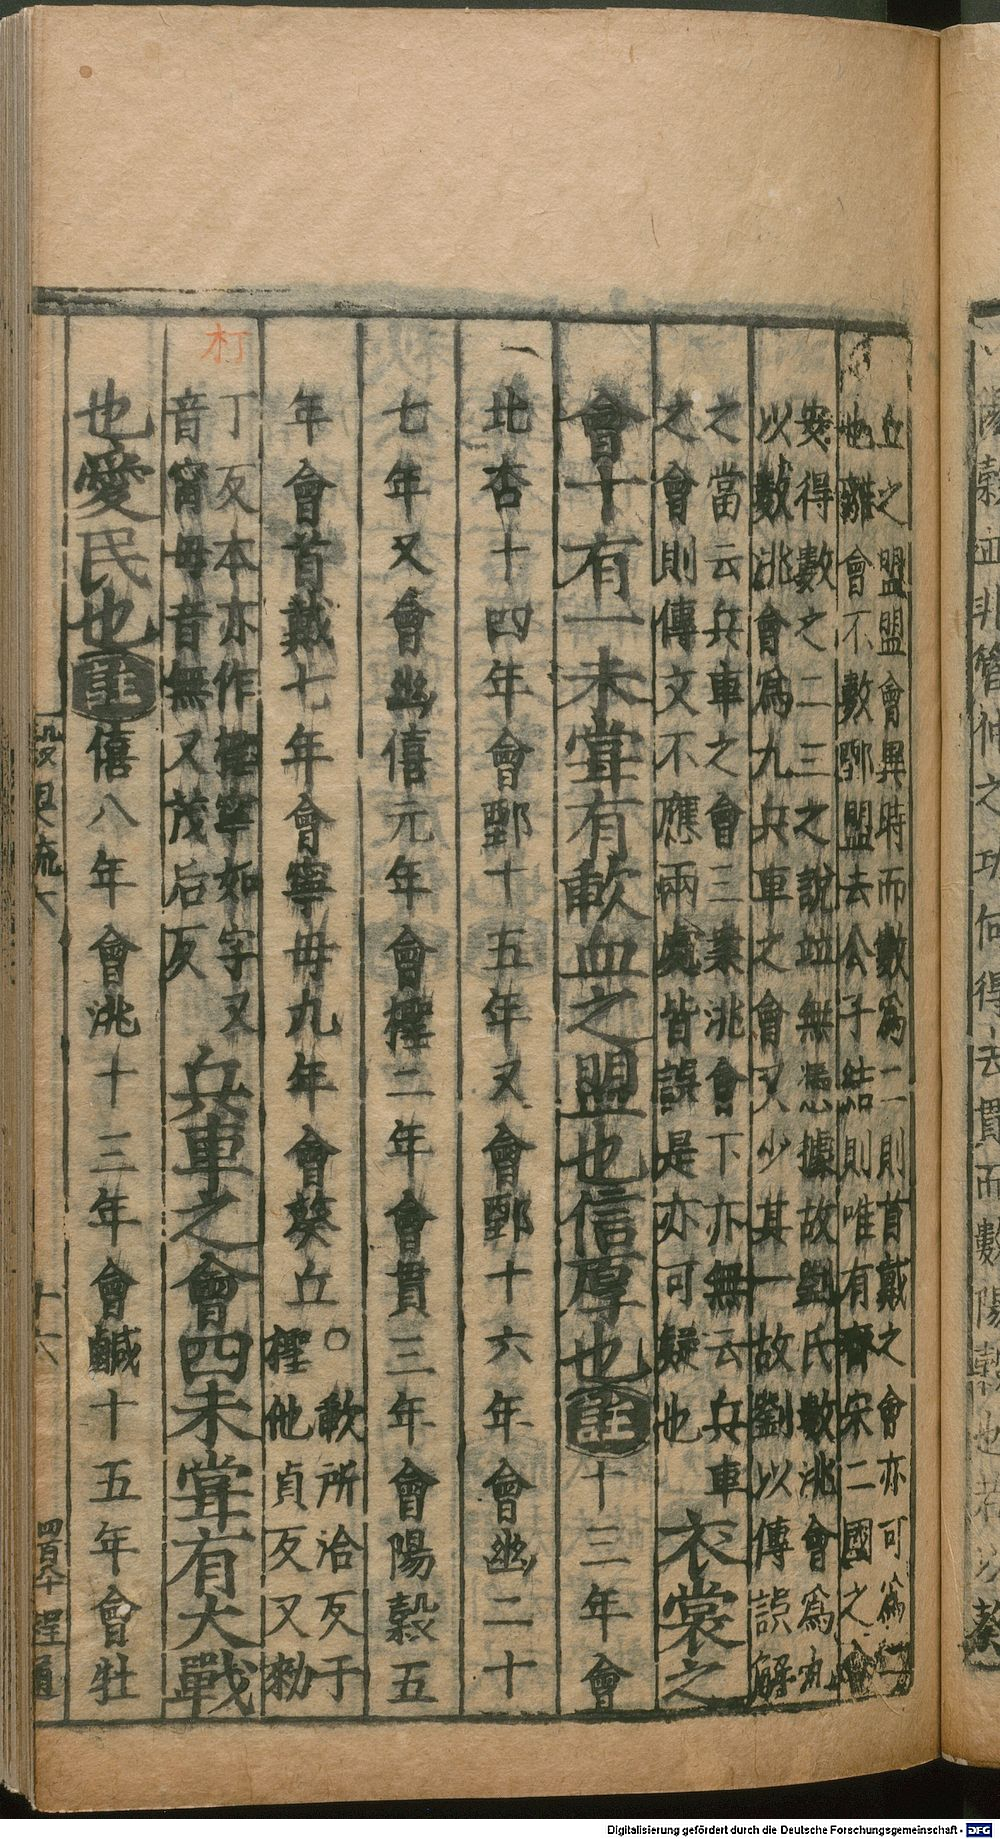 丘之盟盟會異時而數為二則首戴之會亦可為二
也離會不數鄄盟去公子結則唯有齊宋二國之會
安得數之二三之說並無憑據故劉氏數洮會為九
以數洮會為九兵車之會又少其一故劉以傳誤解
之當云兵車之會三案洮會下亦無云兵車
之會則傳文不應兩處皆誤是亦可疑也
衣裳之
會十有一未甞有歃血之盟也信厚也註十三年會
北杏十四年會鄄十五年又會鄄十六年會幽二十
七年又會幽僖元年會檉二年會貫三年會陽穀五
年會首戴七年會寧毋九年會葵丘○
歃所洽反于
檉他貞反又勑
丁反本亦作朾寧如字又
音甯毋音無又茂后反
朾
兵車之會四未甞有大戰
也愛民也註僖八年會洮十三年會鹹十五年會牡
榖梁疏六
十六
四百八十
程通
Digitalisierung gefördert durch die Deutsche Forschungsgemeinschaft - DFG